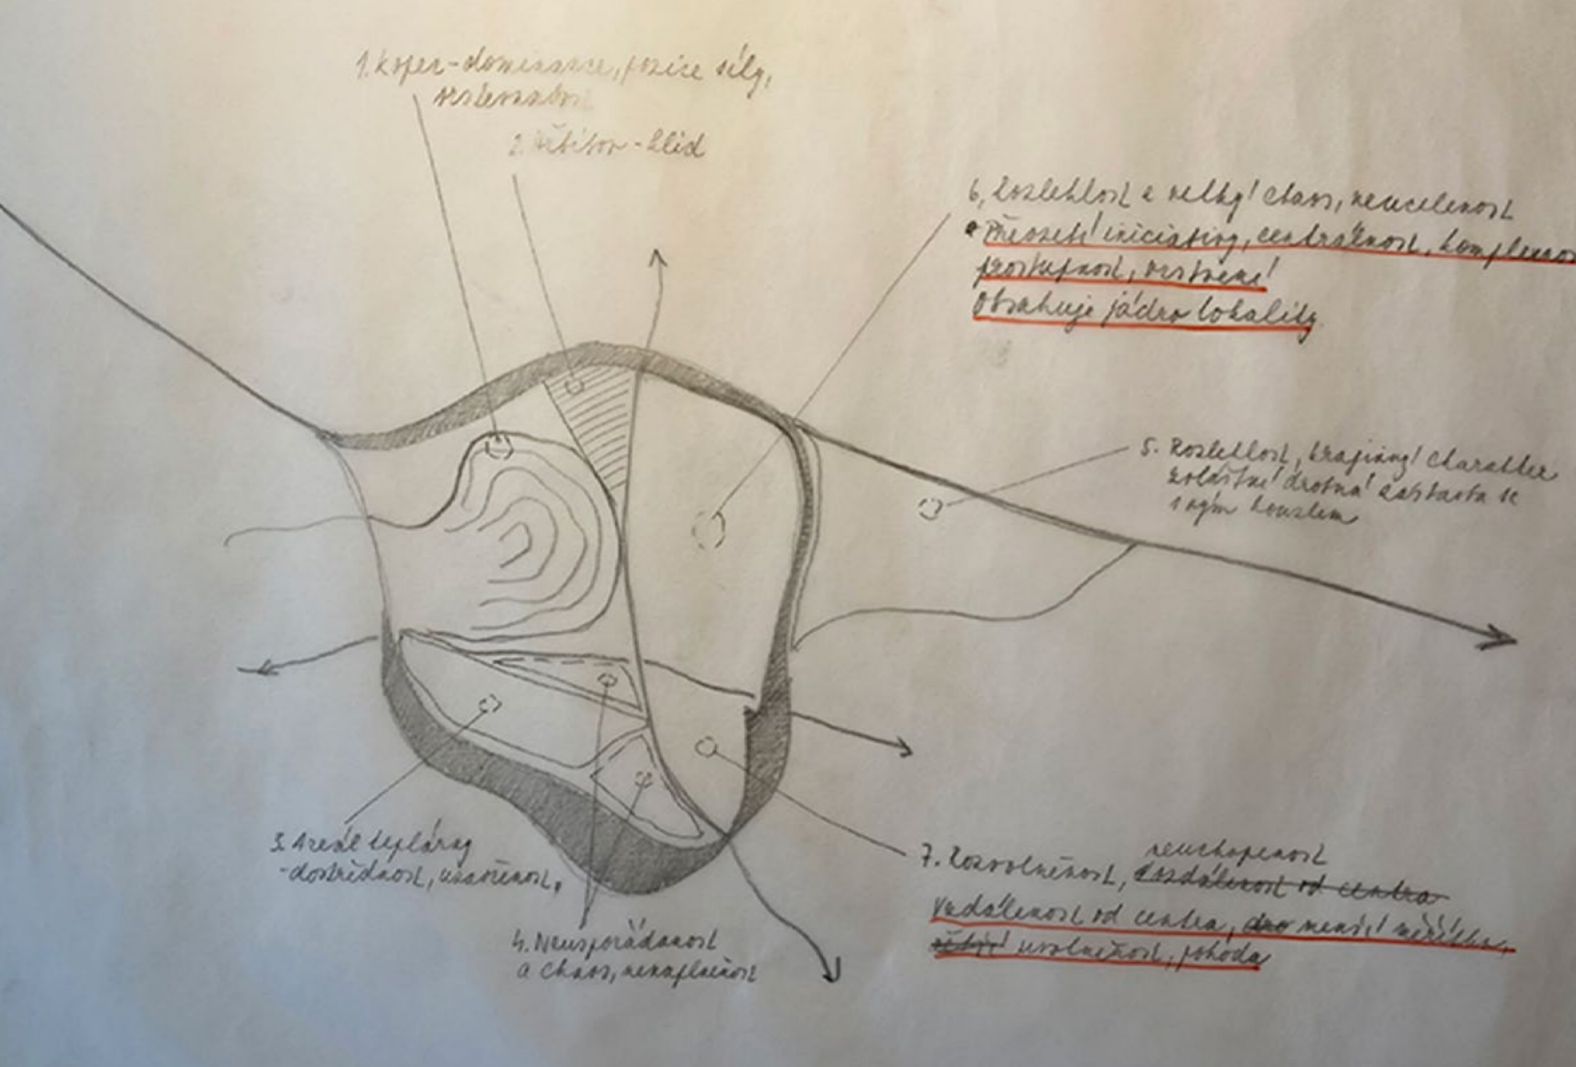 1. Kopec - dominance, pozice síly,
2. Hřbitov - klid
6, Rozlehlost a velký chaos, neucelenost
iniciativy, centrálnost, komplexnos
prostupnost, vrstvení
Obsahuje jádro lokality
5. Rozlehlost, krajinný charakter
zvláštní drobná zástavba se
svým kouzlem
3. Areál teplárny
- dostřednost, uzavřenost,
4. Neuspořádanost
a chaos, nenaplněnost
neuchopenost
7. Rozvolněnost, vzdálenost od centra
Vzdálenost od centra, menší měřítko,
uvolněnost, pohoda